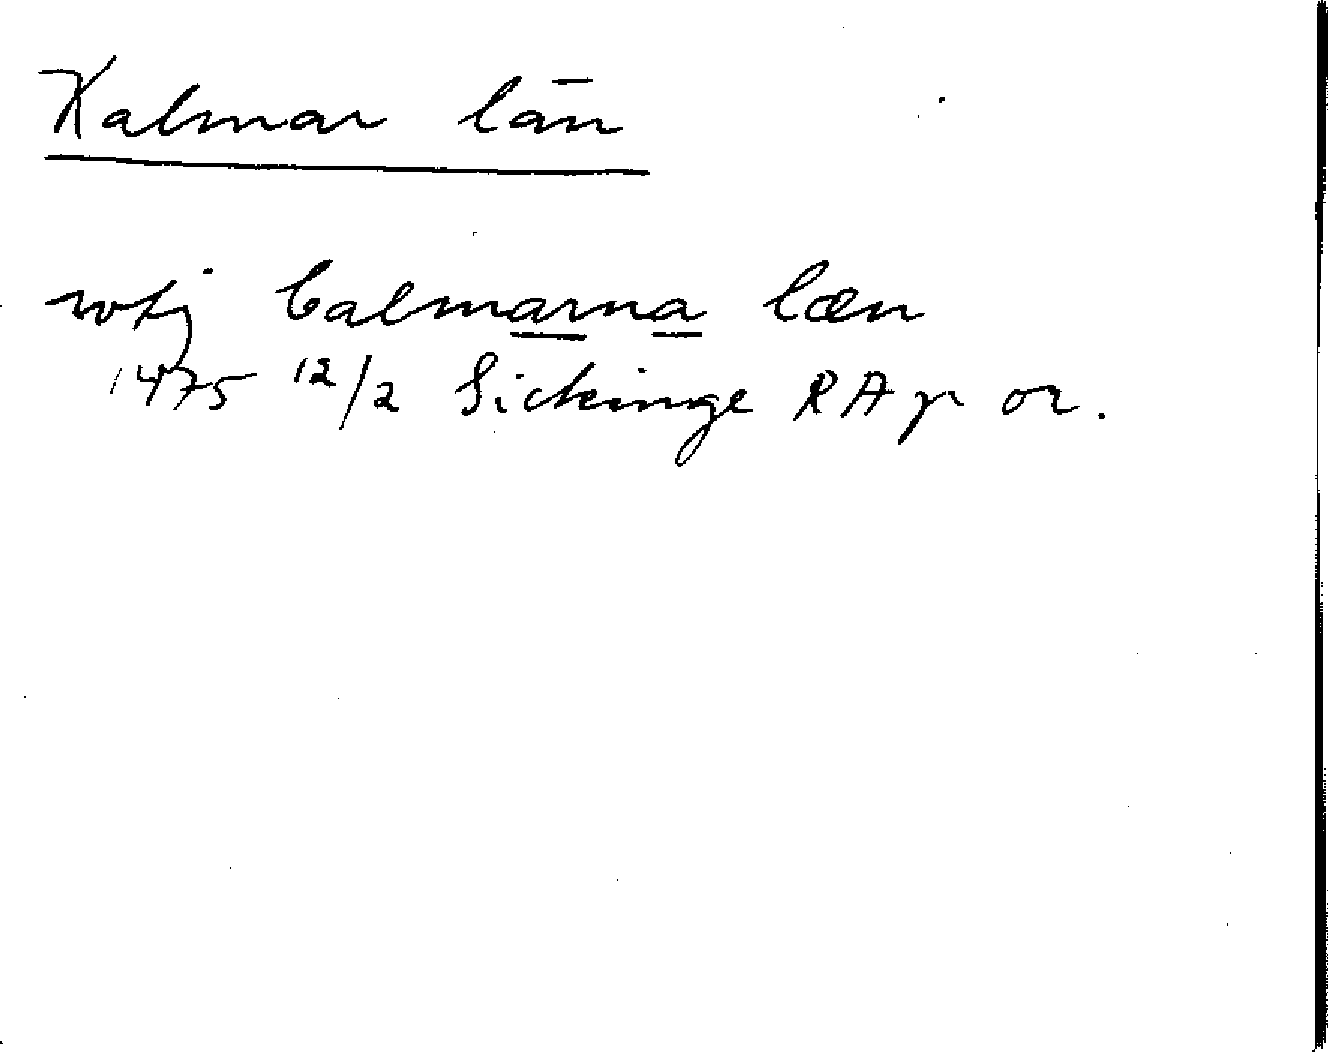 Kalmar län
wtj Calmarna læn
1475 12/2 Sickinge RAp or.